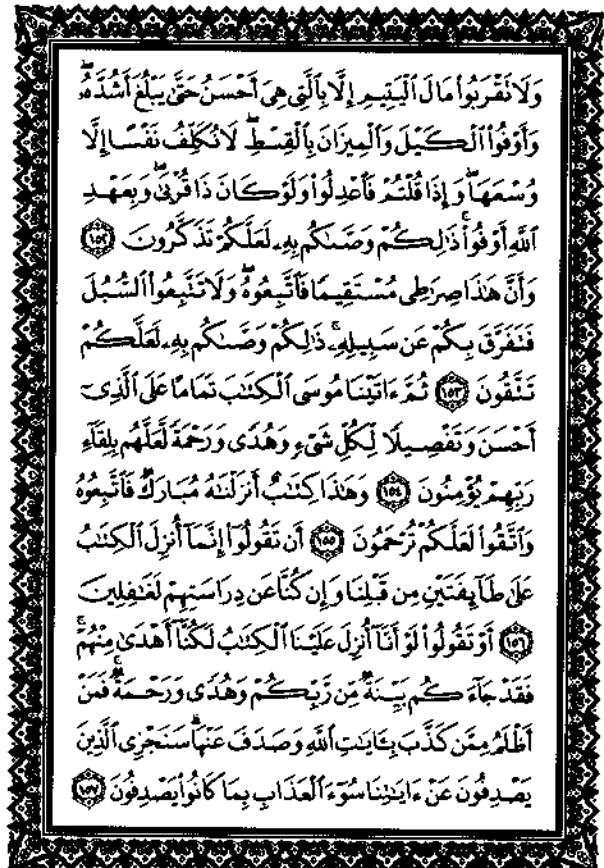 وَلَا تَقْرَبُوا۟ مَالَ ٱلْيَتِيمِ إِلَّا بِٱلَّتِى هِىَ أَحْسَنُ حَتَّىٰ يَبْلُغَ أَشُدَّهُۥ ۖ
وَأَوْفُوا۟ ٱلْكَيْلَ وَٱلْمِيزَانَ بِٱلْقِسْطِ ۖ لَا نُكَلِّفُ نَفْسًا إِلَّا
وُسْعَهَا ۖ وَإِذَا قُلْتُمْ فَٱعْدِلُوا۟ وَلَوْ كَانَ ذَا قُرْبَىٰ ۖ وَبِعَهْدِ
ٱللَّهِ أَوْفُوا۟ ۚ ذَٰلِكُمْ وَصَّىٰكُم بِهِۦ لَعَلَّكُمْ تَذَكَّرُونَ ١٥٢
وَأَنَّ هَٰذَا صِرَٰطِى مُسْتَقِيمًا فَٱتَّبِعُوهُ ۖ وَلَا تَتَّبِعُوا۟ ٱلسُّبُلَ
فَتَفَرَّقَ بِكُمْ عَن سَبِيلِهِۦ ۚ ذَٰلِكُمْ وَصَّىٰكُم بِهِۦ لَعَلَّكُمْ
تَتَّقُونَ ١٥٣ ثُمَّ ءَاتَيْنَا مُوسَى ٱلْكِتَٰبَ تَمَامًا عَلَى ٱلَّذِىٓ
أَحْسَنَ وَتَفْصِيلًا لِّكُلِّ شَىْءٍ وَهُدًى وَرَحْمَةً لَّعَلَّهُم بِلِقَآءِ
رَبِّهِمْ يُؤْمِنُونَ ١٥٤ وَهَٰذَا كِتَٰبٌ أَنزَلْنَٰهُ مُبَارَكٌ فَٱتَّبِعُوهُ
وَٱتَّقُوا۟ لَعَلَّكُمْ تُرْحَمُونَ ١٥٥ أَن تَقُولُوٓا۟ إِنَّمَآ أُنزِلَ ٱلْكِتَٰبُ
عَلَىٰ طَآئِفَتَيْنِ مِن قَبْلِنَا وَإِن كُنَّا عَن دِرَاسَتِهِمْ لَغَٰفِلِينَ
١٥٦ أَوْ تَقُولُوا۟ لَوْ أَنَّآ أُنزِلَ عَلَيْنَا ٱلْكِتَٰبُ لَكُنَّآ أَهْدَىٰ مِنْهُمْ ۚ
فَقَدْ جَآءَكُم بَيِّنَةٌ مِّن رَّبِّكُمْ وَهُدًى وَرَحْمَةٌ ۚ فَمَنْ
أَظْلَمُ مِمَّن كَذَّبَ بِـَٔايَٰتِ ٱللَّهِ وَصَدَفَ عَنْهَا ۗ سَنَجْزِى ٱلَّذِينَ
يَصْدِفُونَ عَنْ ءَايَٰتِنَا سُوٓءَ ٱلْعَذَابِ بِمَا كَانُوا۟ يَصْدِفُونَ ١٥٧